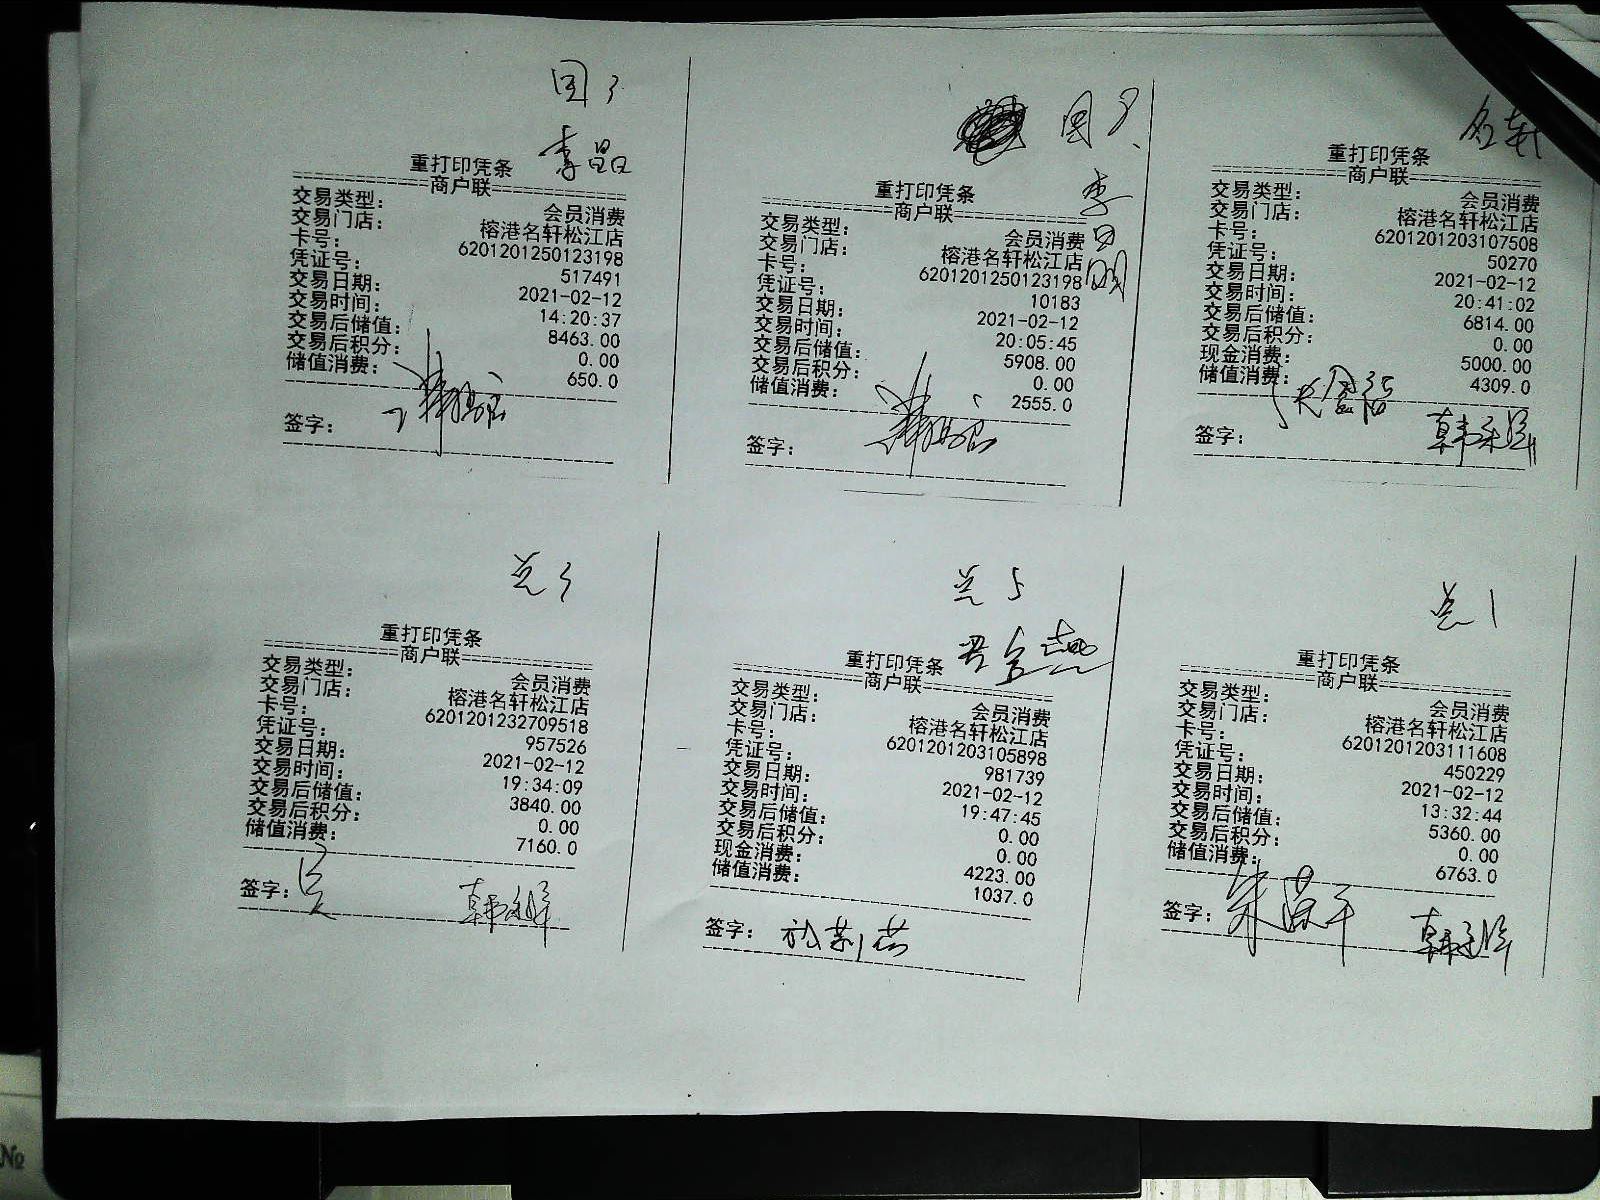 国3
李晶
重打印凭条
商户联
交易类型: 会员消费
交易门店: 榕港名轩松江店
卡号: 6201201250123198
凭证号: 517491
交易日期: 2021-02-12
交易时间: 14:20:37
交易后储值: 8463.00
交易后积分: 0.00
储值消费: 650.0
签字:
重打印凭条
商户联
交易类型: 会员消费
交易门店: 榕港名轩松江店
卡号: 6201201250123198
凭证号: 10183
交易日期: 2021-02-12
交易时间: 20:05:45
交易后储值: 5908.00
交易后积分: 0.00
储值消费: 2555.0
签字:
名轩
重打印凭条
商户联
交易类型: 会员消费
交易门店: 榕港名轩松江店
卡号: 6201201203107508
凭证号: 50270
交易日期: 2021-02-12
交易时间: 20:41:02
交易后储值: 6814.00
交易后积分: 0.00
现金消费: 5000.00
储值消费: 4309.0
签字:
兰3
重打印凭条
商户联
交易类型: 会员消费
交易门店: 榕港名轩松江店
卡号: 6201201232709518
凭证号: 957526
交易日期: 2021-02-12
交易时间: 19:34:09
交易后储值: 3840.00
交易后积分: 0.00
储值消费: 7160.0
签字:
兰5
重打印凭条
商户联
交易类型: 会员消费
交易门店: 榕港名轩松江店
卡号: 6201201203105898
凭证号: 981739
交易日期: 2021-02-12
交易时间: 19:47:45
交易后储值: 0.00
交易后积分: 0.00
现金消费: 4223.00
储值消费: 1037.0
签字:
兰1
重打印凭条
商户联
交易类型: 会员消费
交易门店: 榕港名轩松江店
卡号: 6201201203111608
凭证号: 450229
交易日期: 2021-02-12
交易时间: 13:32:44
交易后储值: 5360.00
交易后积分: 0.00
储值消费: 6763.0
签字:
№